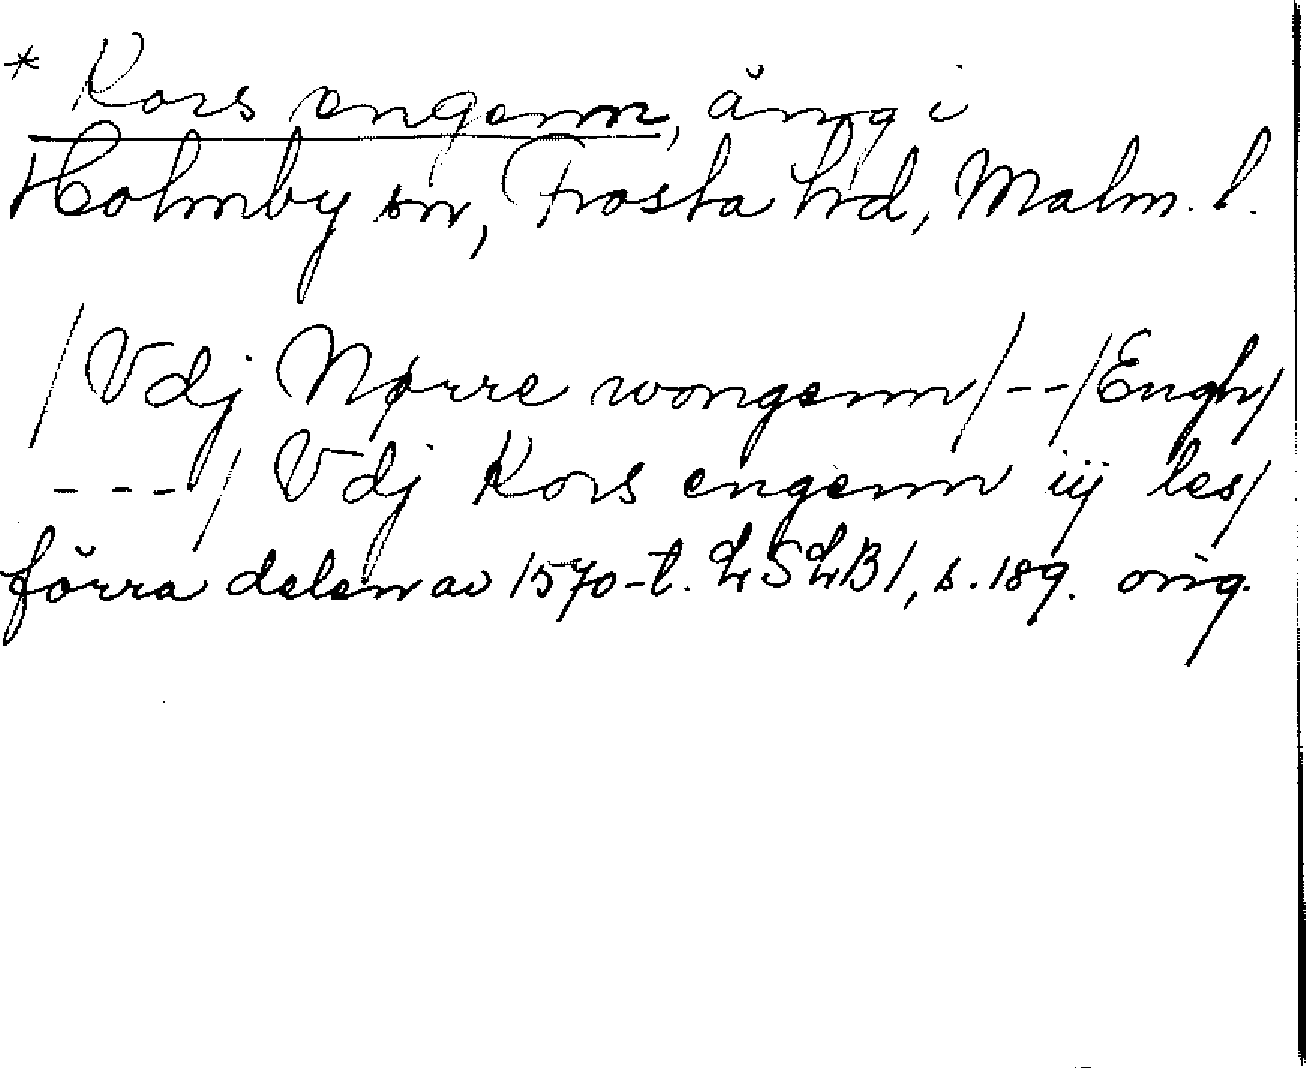 * Kors engenn, äng i
Holmby sn, Frosta hd, Malm. l.
/Vdj Nørre wongenn/--/Engh/
---/Vdj Kors engenn iij les/
förra delen av 1570-t. LSLB1, s. 189. orig.